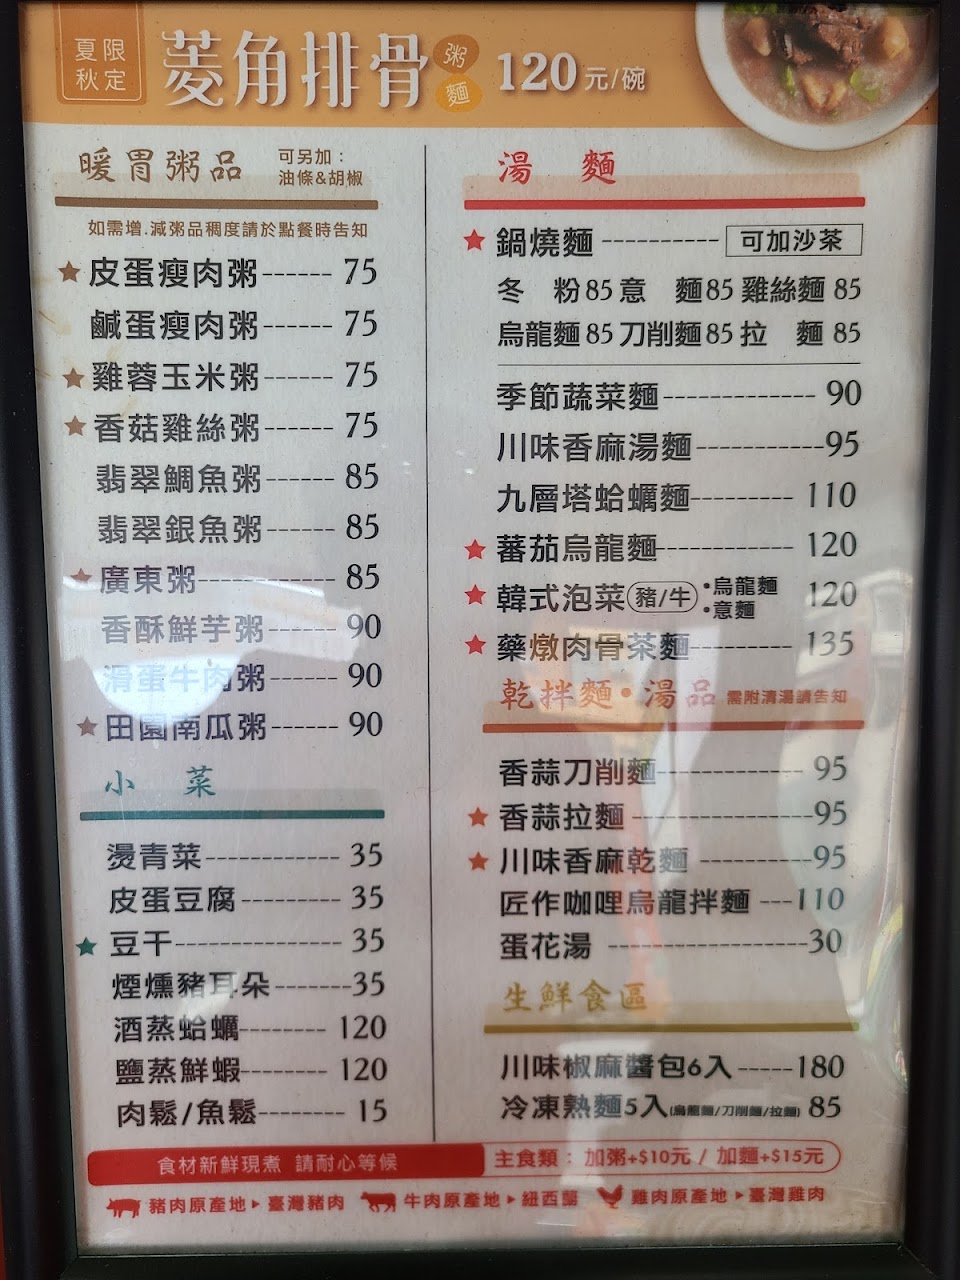 夏限
秋定
菱角排骨 粥 麵 120元/碗
暖胃粥品 可另加：
油條&胡椒
如需增.減粥品稠度請於點餐時告知
★皮蛋瘦肉粥------75
鹹蛋瘦肉粥------75
★雞蓉玉米粥------75
★香菇雞絲粥------75
翡翠鯛魚粥------85
翡翠銀魚粥------85
★廣東粥------------85
香酥鮮芋粥------90
滑蛋牛肉粥------90
★田園南瓜粥------90
小 菜
燙青菜------------35
皮蛋豆腐---------35
★豆干---------------35
煙燻豬耳朵-------35
酒蒸蛤蠣--------120
鹽蒸鮮蝦--------120
肉鬆/魚鬆--------15
湯 麵
★鍋燒麵----------可加沙茶
冬 粉85 意 麵85 雞絲麵 85
烏龍麵85 刀削麵85 拉 麵 85
季節蔬菜麵-------------90
川味香麻湯麵-----------95
九層塔蛤蠣麵---------110
★蕃茄烏龍麵------------120
★韓式泡菜(豬/牛)•烏龍麵 •意麵 120
★藥燉肉骨茶麵---------135
乾拌麵•湯品 需附清湯請告知
香蒜刀削麵------------95
★香蒜拉麵---------------95
★川味香麻乾麵---------95
匠作咖哩烏龍拌麵---110
蛋花湯-----------------30
生鮮食區
川味椒麻醬包6入-----180
冷凍熟麵5入(烏龍麵/刀削麵/拉麵) 85
食材新鮮現煮 請耐心等候
主食類：加粥+$10元 / 加麵+$15元
豬肉原產地▸臺灣豬肉 牛肉原產地▸紐西蘭 雞肉原產地▸臺灣雞肉